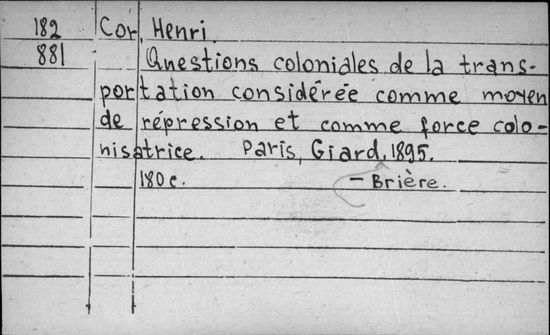 182 Cor, Henri.
881 Questions coloniales de la trans-
portation considérée comme moyen
de répression et comme force colo-
nisatrice. Paris, Giard, 1895.
180 c. - Brière.